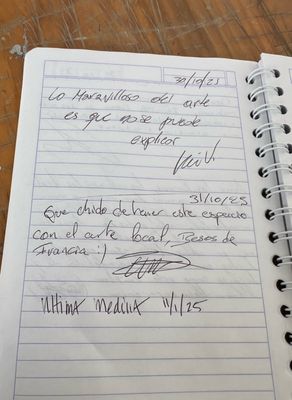 30/10/25
Lo Maravilloso del arte
es que no se puede
explicar
31/10/25
Que chido de tener este espacio
con el arte local, Besos de
Francia :)
ultima Medilia 11/1/25